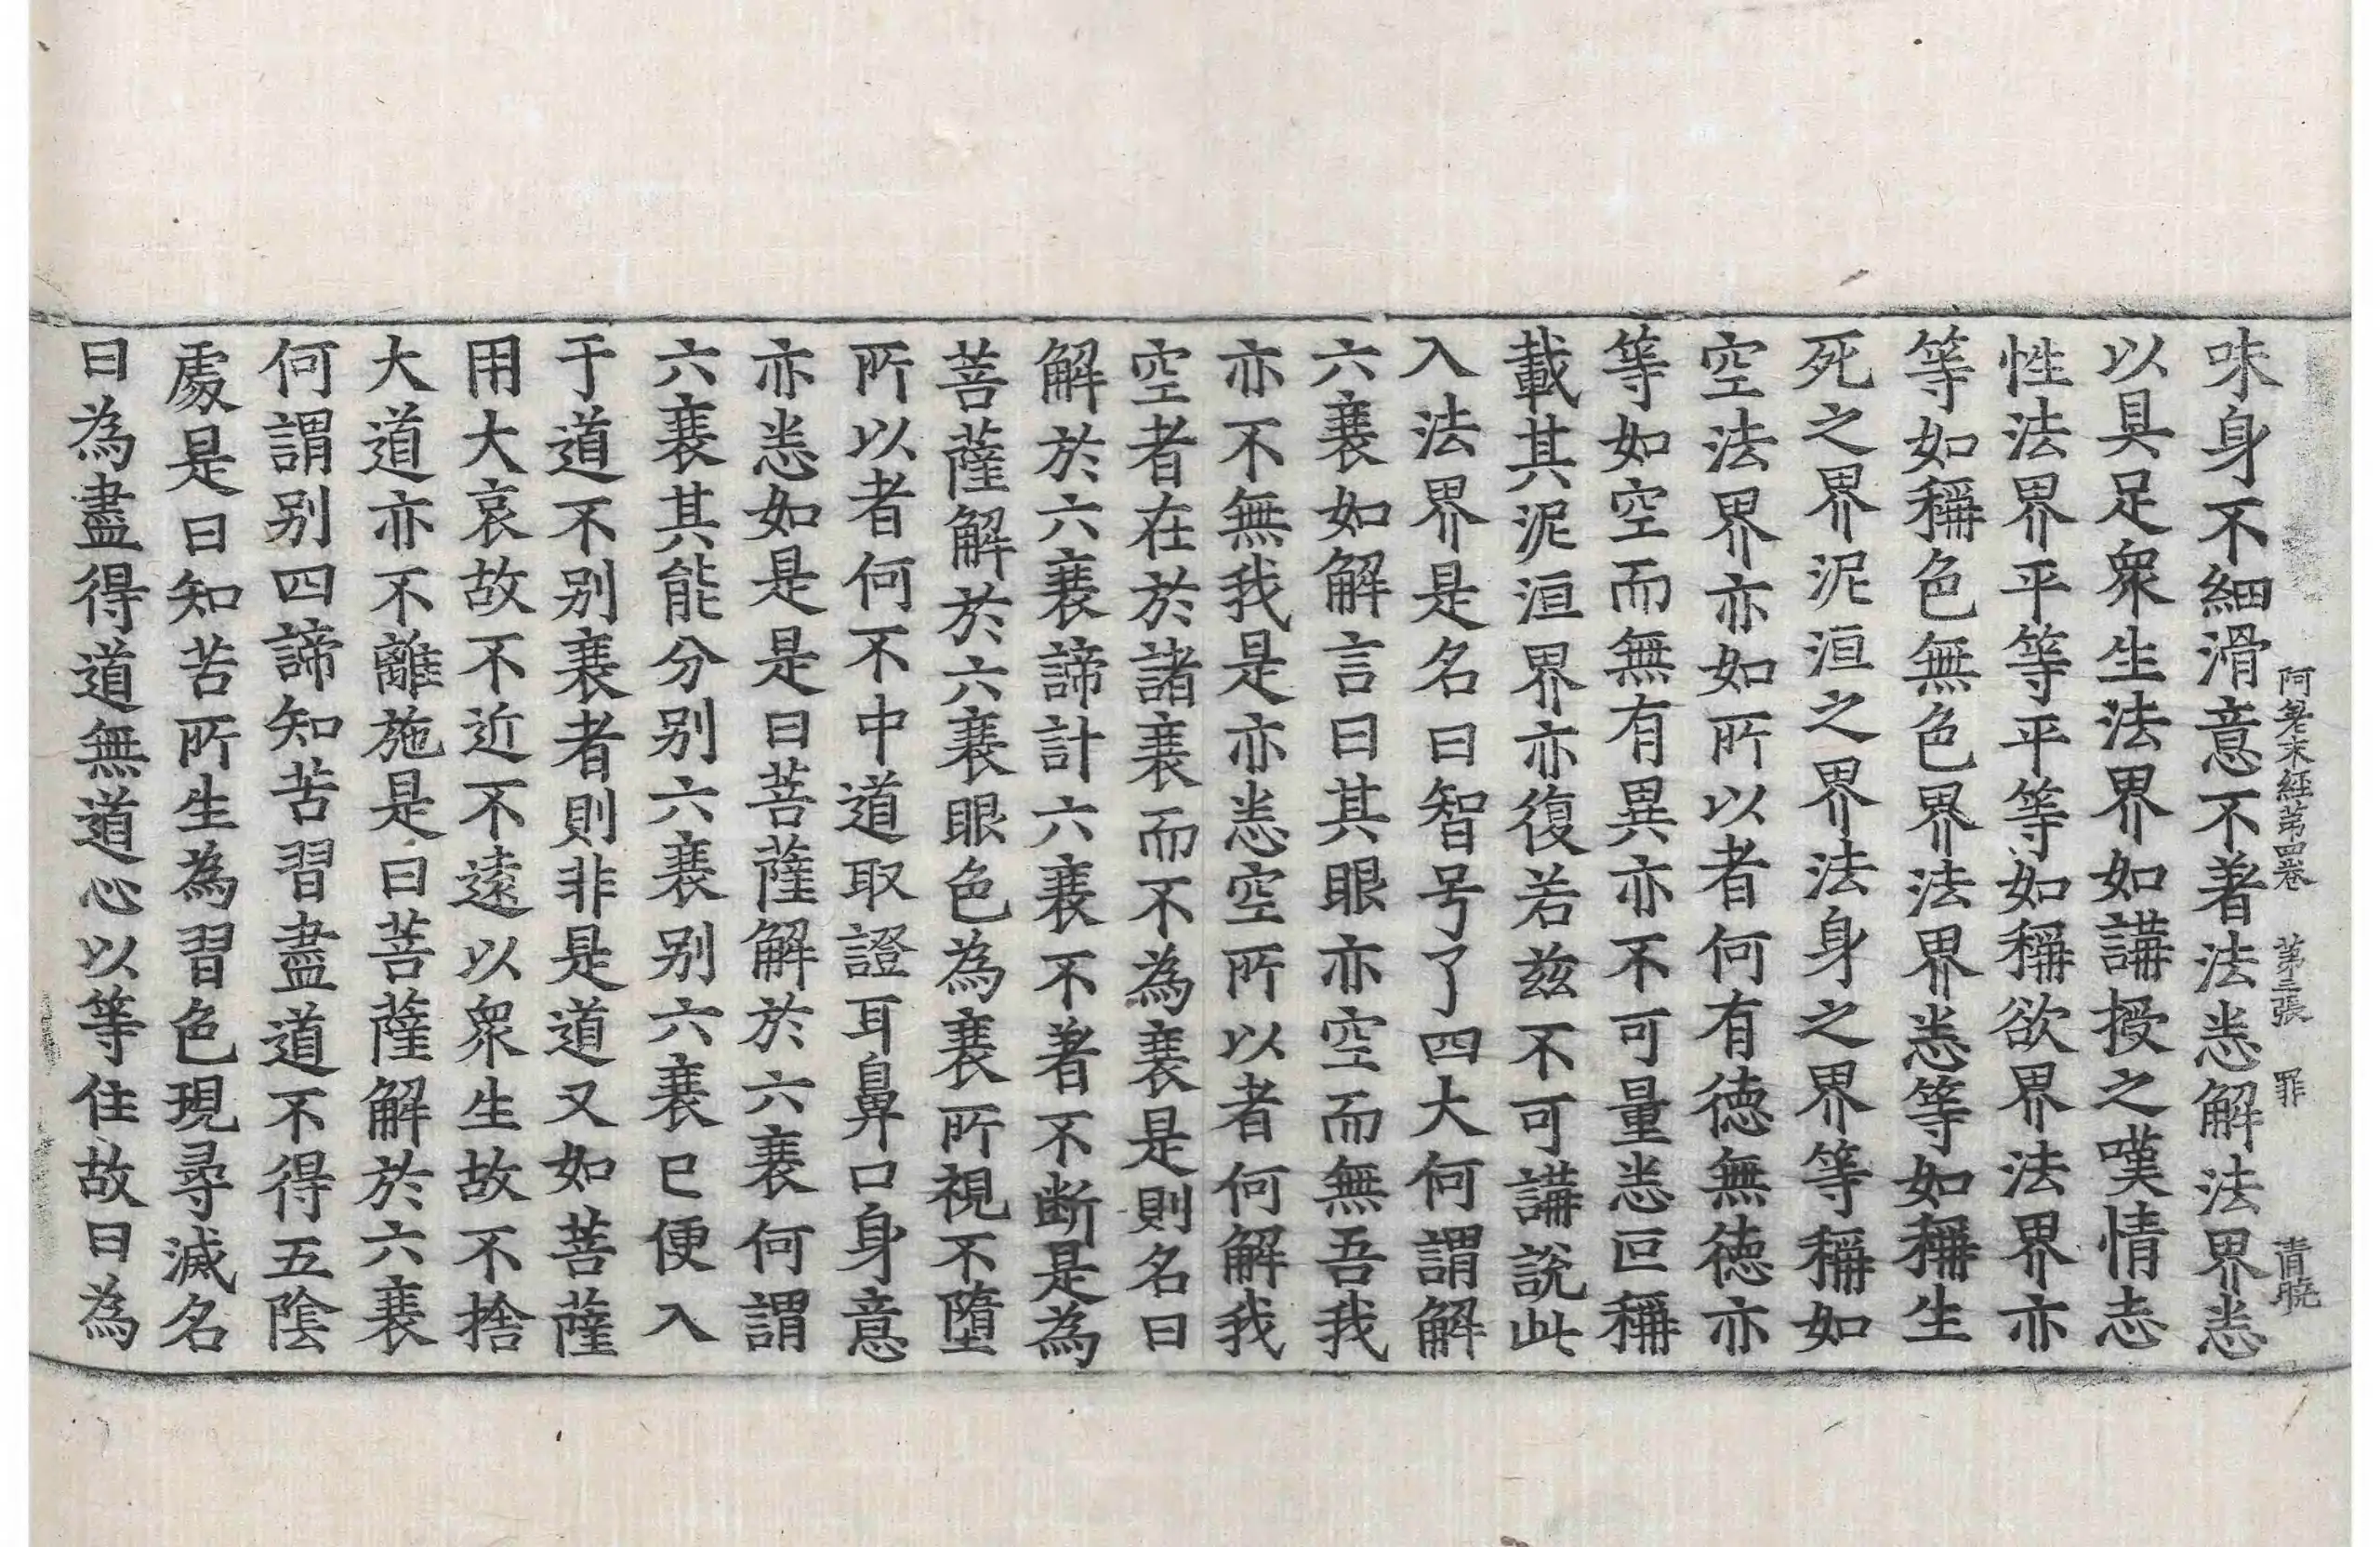 阿差末經第四卷 第三張 罪
味身不細滑意不著法悉解法界悉
以具足衆生法界如講授之嘆情志
性法界平等平等如稱欲界法界亦
等如稱色無色界法界悉等如稱生
死之界泥洹之界法身之界等稱如
空法界亦如所以者何有德無德亦
等如空而無有異亦不可量悉叵稱
載其泥洹界亦復若兹不可講說此
入法界是名曰智号了四大何謂解
六衰如解言曰其眼亦空而無吾我
亦不無我是亦悉空所以者何解我
空者在於諸衰而不為衰是則名曰
解於六衰諦計六衰不著不断是為
菩薩解於六衰眼色為衰所視不墮
所以者何不中道取證耳鼻口身意
亦悉如是是曰菩薩解於六衰何謂
六衰其能分别六衰别六衰已便入
于道不别衰者則非是道又如菩薩
用大哀故不近不遠以衆生故不捨
大道亦不離施是曰菩薩解於六衰
何謂别四諦知苦習盡道不得五陰
處是曰知苦所生為習色現尋滅名
曰為盡得道無道心以等住故曰為